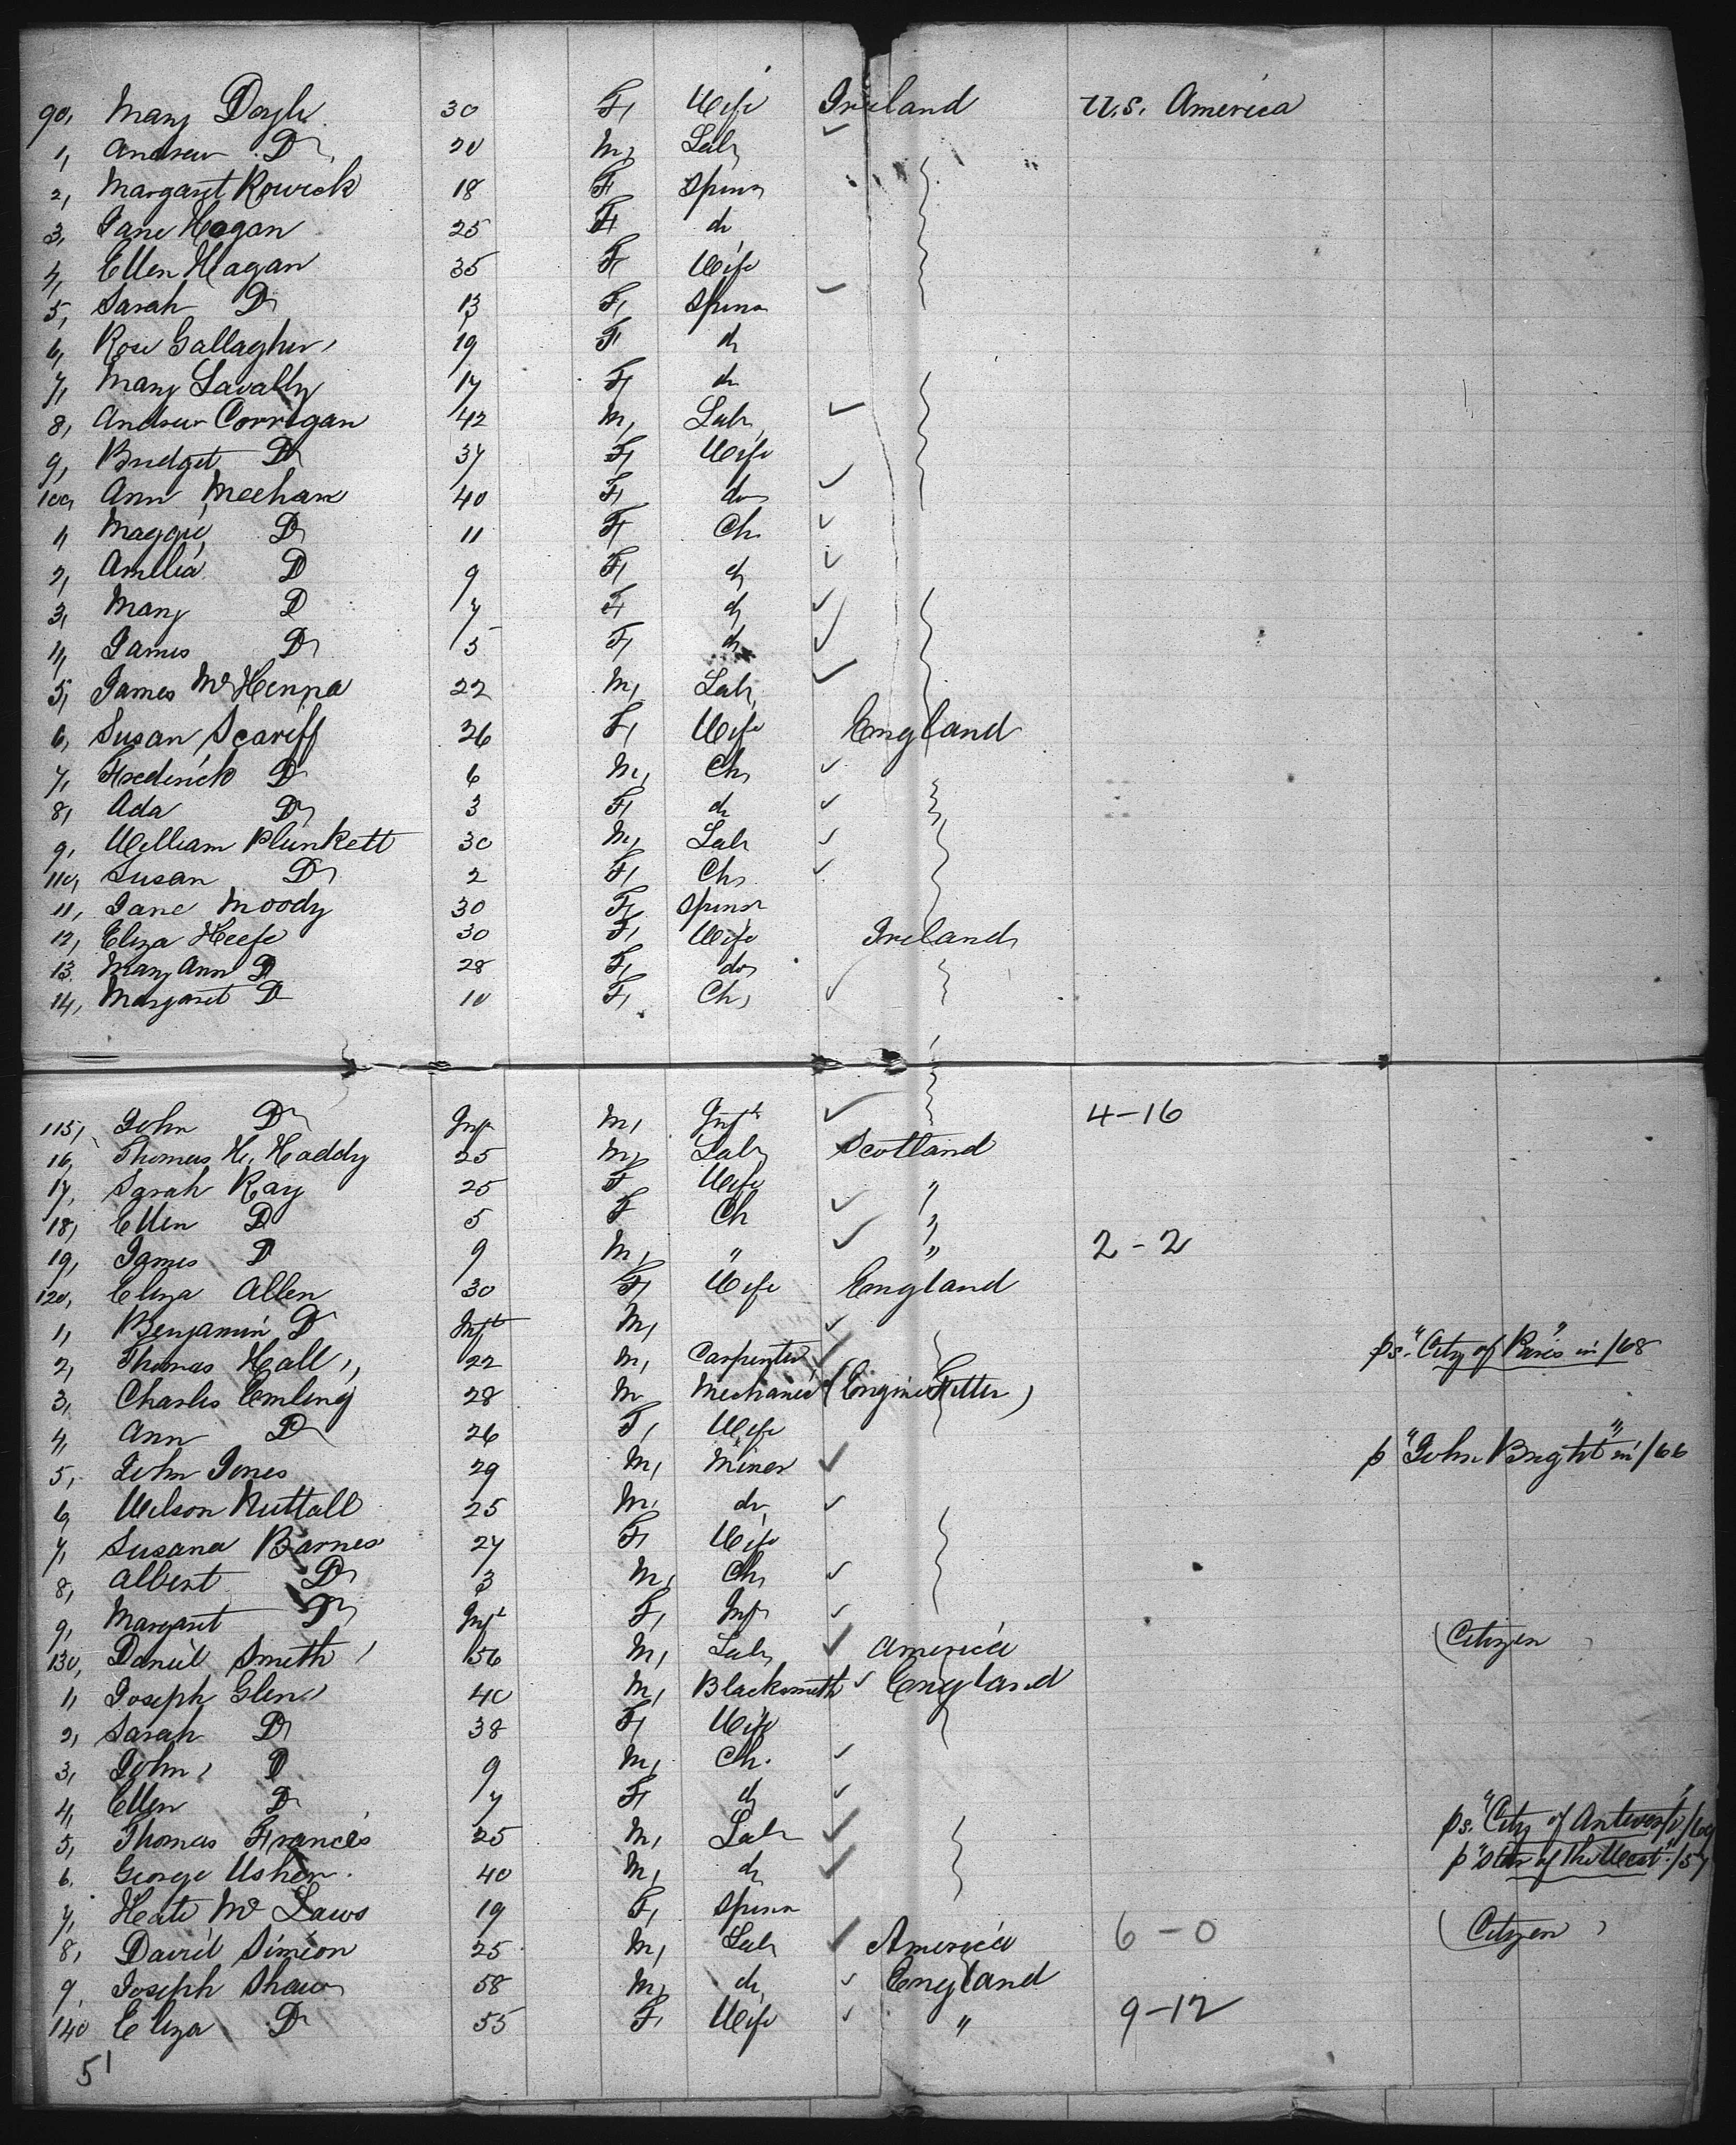 90, Mary Doyle 30 F, Wife Ireland U.S. America
1, Andrew Do 20 M, Labr
2, Margaret Rowick 18 F Spinr
3, Jane Hogan 25 F do
4, Ellen Hagan 35 F Wife
5, Sarah Do 13 F, Spinr
6, Rose Gallagher 19 F do
7, Mary Lavally 17 F, do
8, Andrew Corrigan 42 M, Labr
9, Bridget Do 37 F, Wife
100, Ann Meehan 40 F, do
1, Maggie Do 11 F Ch
2, Amelia Do 9 F, do
3, Mary Do 7 F, do
4, James Do 5 F, do
5, James McKenna 22 M, Labr
6, Susan Scariff 26 F, Wife England
7, Frederick Do 6 M, Ch
8, Ada Do 3 F, do
9, William Plunkett 30 M, Labr
110, Susan Do 2 F, Ch
11, Jane Moody 30 F, Spinr
12, Eliza Keefe 30 F, Wife Ireland
13 Mary Ann Do 28 F, do
14, Margaret Do 10 F, Ch,
115, John Do Inft M, Inft 4-16
16, Thomas H. Haddy 25 M, Labr Scotland
17, Sarah Ray 25 F Wife "
18, Ellen Do 5 F Ch "
19, James Do 9 M, " " 2-2
120, Eliza Allen 30 F, Wife England
1, Benjamin Do Inft M,
2, Thomas Hall 22 M, Carpenter ps. "City of Paris" in /68
3, Charles Emling 28 M Mechanic (Engine Fitter)
4, Ann Do 26 F, Wife
5, John Jones 29 M, Miner p "John Bright" in /66
6, Wilson Nuttall 25 M, do
7, Susana Barnes 27 F, Wife
8, Albert Do 3 M, Ch,
9, Margaret Do Inft F, Inft
130, Daniel Smith 56 M, Labr America (Citizen)
1, Joseph Glen 40 M, Blacksmith England
2, Sarah Do 38 F, Wife
3, John Do 9 M, Ch.
4, Ellen Do 7 F, do
5, Thomas Francis 25 M, Labr ps. "City of Antwerp" /69
6. George Usher. 40 M, do p "Star of the West" /57
7, Kate Mc Laws 19 F, Spinr
8, David Simeon 25 M, Labr America 6-0 (Citizen)
9, Joseph Shaw 58 M, do England
140 Eliza Do 55 F, Wife " 9-12
51